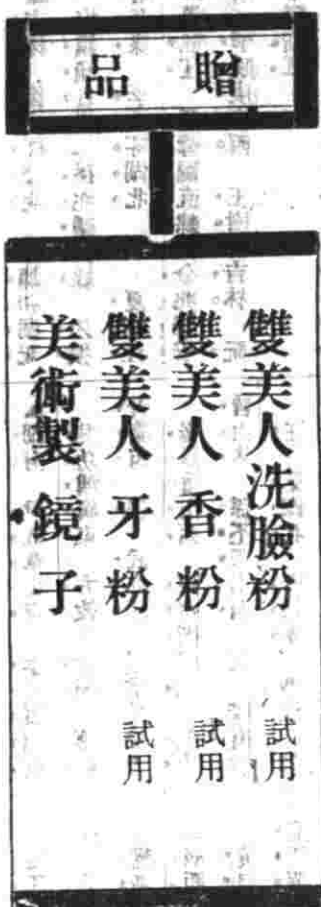 贈品
雙美人洗臉粉 試用
雙美人香粉 試用
雙美人牙粉 試用
美術製鏡子